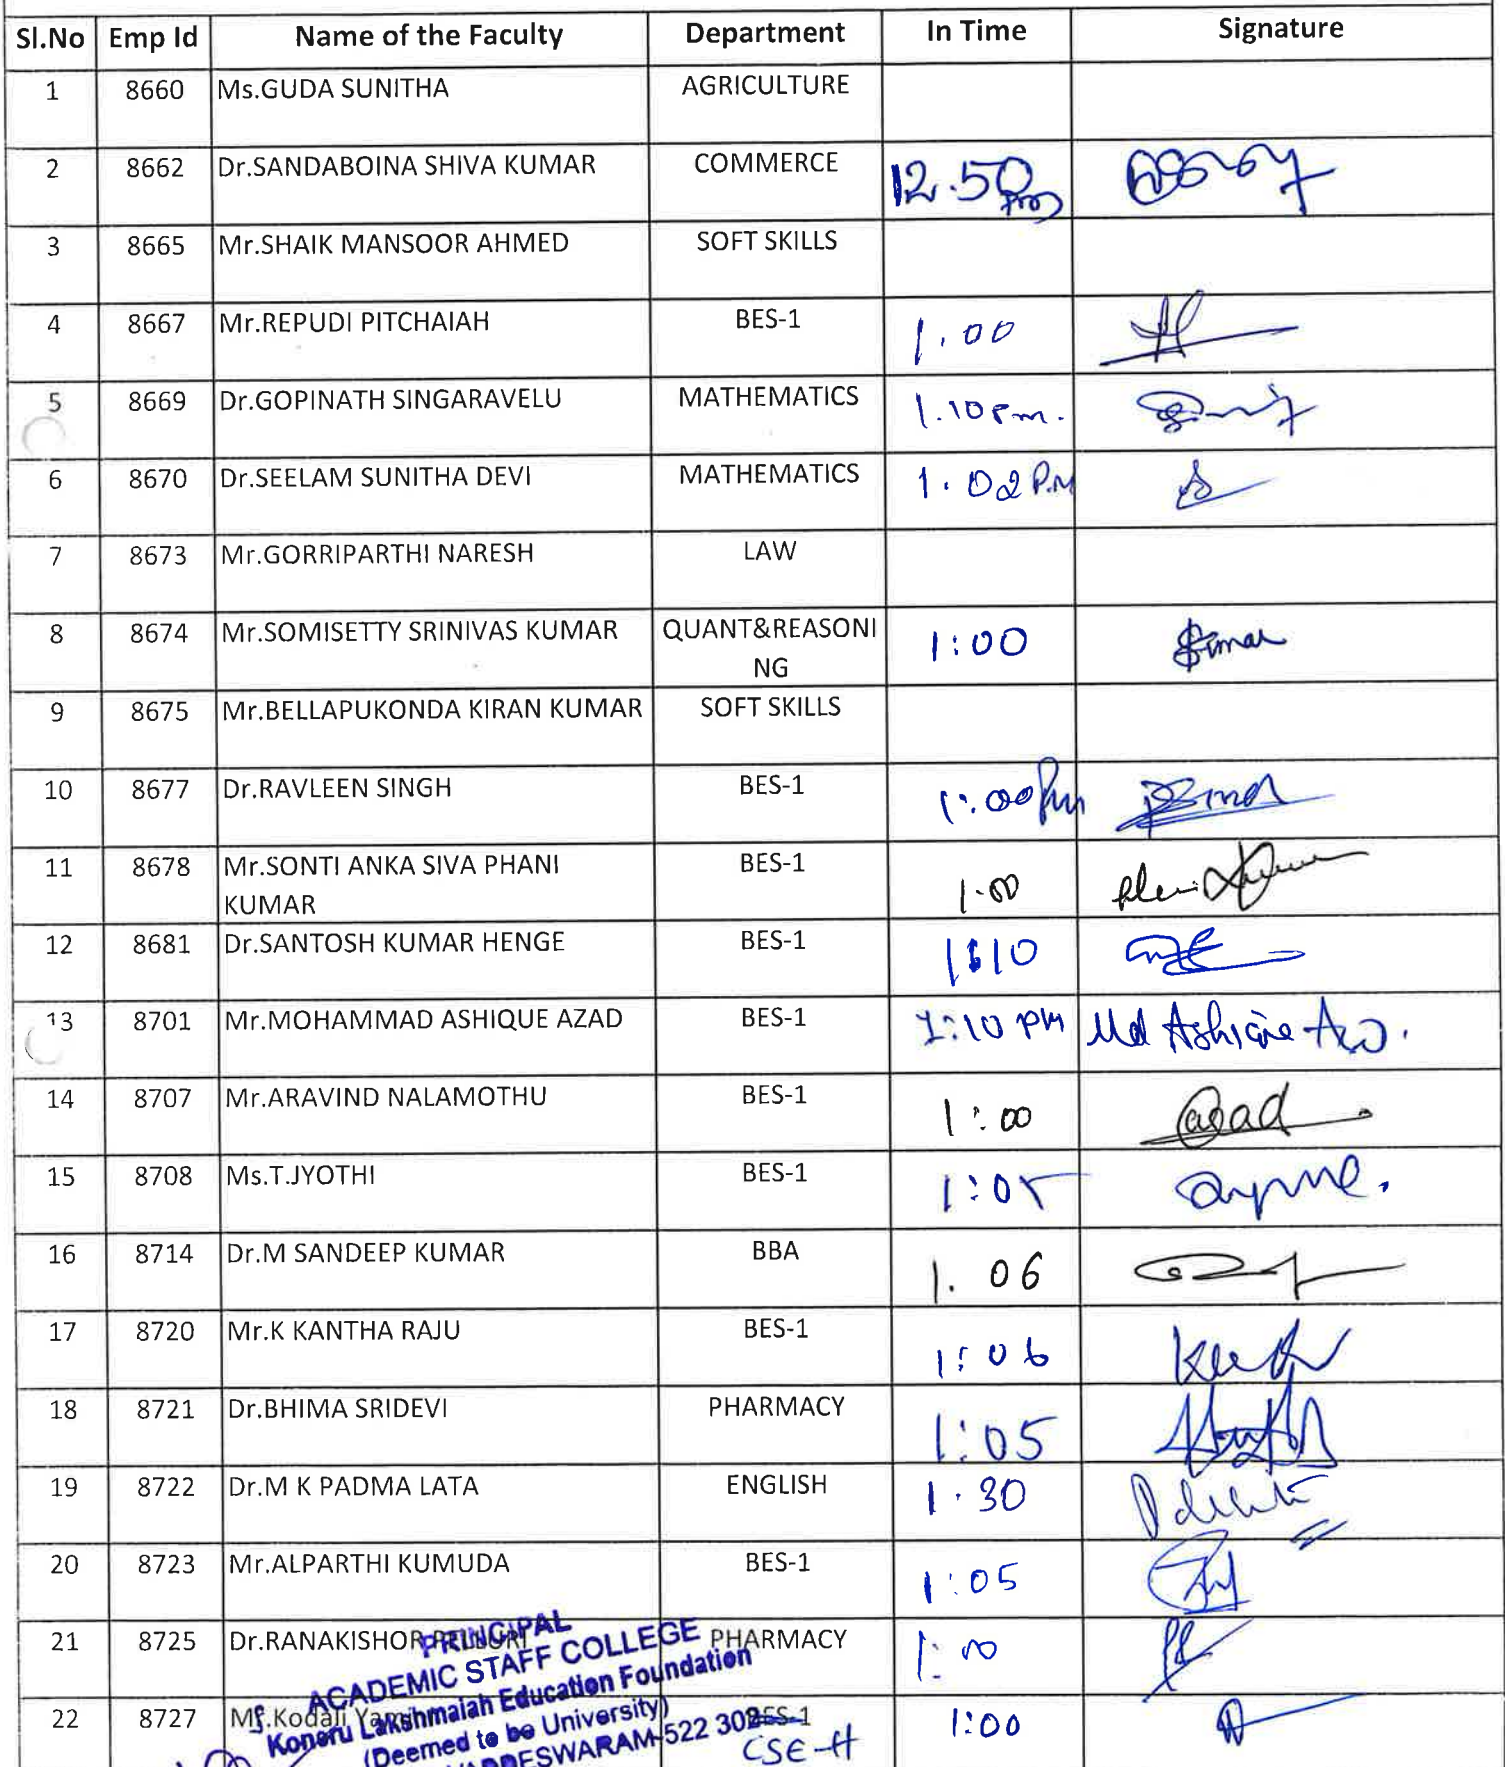 Sl.No Emp Id Name of the Faculty Department In Time Signature
1 8660 Ms.GUDA SUNITHA AGRICULTURE
2 8662 Dr.SANDABOINA SHIVA KUMAR COMMERCE 12.50 pm
3 8665 Mr.SHAIK MANSOOR AHMED SOFT SKILLS
4 8667 Mr.REPUDI PITCHAIAH BES-1 1.00
5 8669 Dr.GOPINATH SINGARAVELU MATHEMATICS 1.10 pm.
6 8670 Dr.SEELAM SUNITHA DEVI MATHEMATICS 1.02 P.M
7 8673 Mr.GORRIPARTHI NARESH LAW
8 8674 Mr.SOMISETTY SRINIVAS KUMAR QUANT&REASONI 1:00
NG
9 8675 Mr.BELLAPUKONDA KIRAN KUMAR SOFT SKILLS
10 8677 Dr.RAVLEEN SINGH BES-1 1:00 Pm
11 8678 Mr.SONTI ANKA SIVA PHANI BES-1 1.00
KUMAR
12 8681 Dr.SANTOSH KUMAR HENGE BES-1 1:10
13 8701 Mr.MOHAMMAD ASHIQUE AZAD BES-1 1:10 PM Md Ashique
14 8707 Mr.ARAVIND NALAMOTHU BES-1 1:00
15 8708 Ms.T.JYOTHI BES-1 1:05
16 8714 Dr.M SANDEEP KUMAR BBA 1.06
17 8720 Mr.K KANTHA RAJU BES-1 1:06
18 8721 Dr.BHIMA SRIDEVI PHARMACY 1:05
19 8722 Dr.M K PADMA LATA ENGLISH 1.30
20 8723 Mr.ALPARTHI KUMUDA BES-1 1:05
21 8725 Dr.RANAKISHOR PHARMACY 1:00
22 8727 Kodali BES-1 1:00
CSE-H
PRINCIPAL
ACADEMIC STAFF COLLEGE
Koneru Lakshmaiah Education Foundation
(Deemed to be University)
522 302